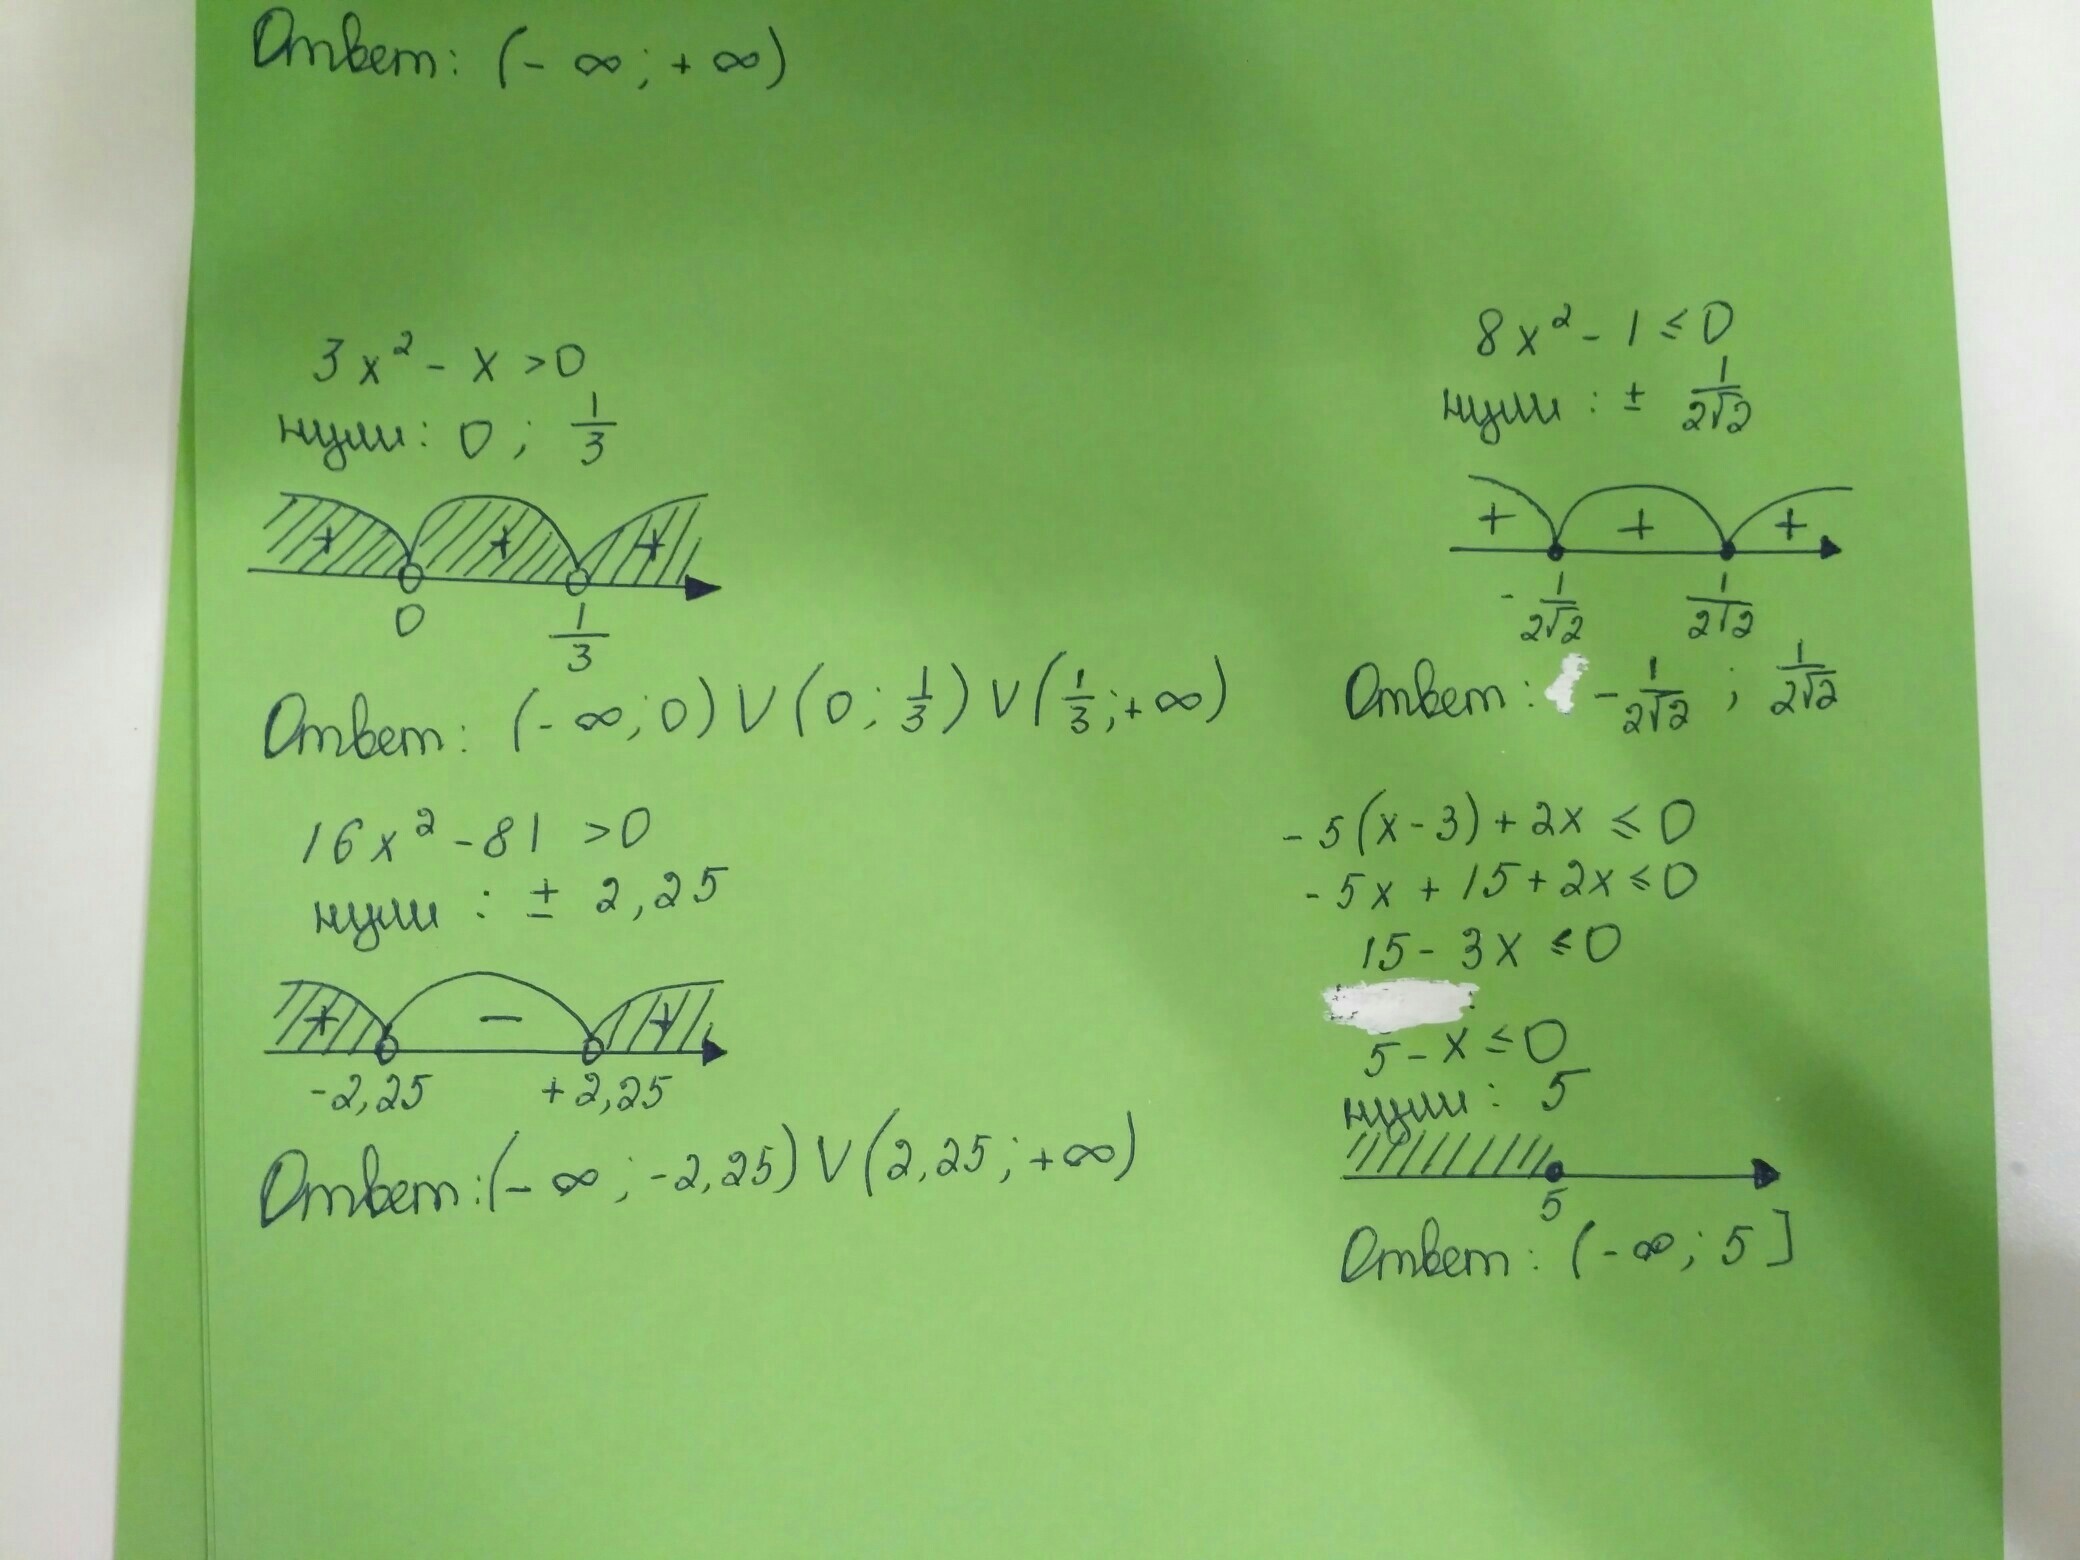 Ответ: (- ∞; + ∞)
3x² - x > 0
нули: 0; 1/3
+ + +
0 1/3
Ответ: (- ∞; 0) V (0; 1/3) V (1/3; + ∞)
16x² - 81 > 0
нули: ± 2,25
+ - +
-2,25 +2,25
Ответ: (- ∞; -2,25) V (2,25; +∞)
8x² - 1 ≤ 0
нули: ± 1/2√2
+ + +
- 1/2√2 1/2√2
Ответ: - 1/2√2 ; 1/2√2
- 5(x-3) + 2x ≤ 0
- 5x + 15 + 2x ≤ 0
15 - 3x ≤ 0
5 - x ≤ 0
нули: 5
5
Ответ: (- ∞; 5]